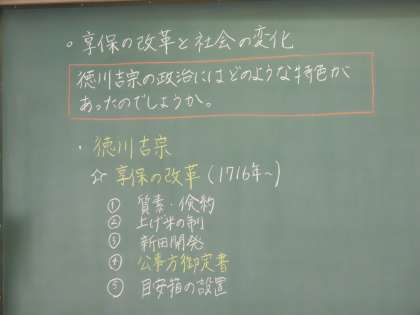 。享保の改革と社会の変化
徳川吉宗の政治にはどのような特色が
あったのでしょうか。
・徳川吉宗
☆享保の改革(1716年~)
① 質素・倹約
② 上げ米の制
③ 新田開発
④ 公事方御定書
⑤ 目安箱の設置